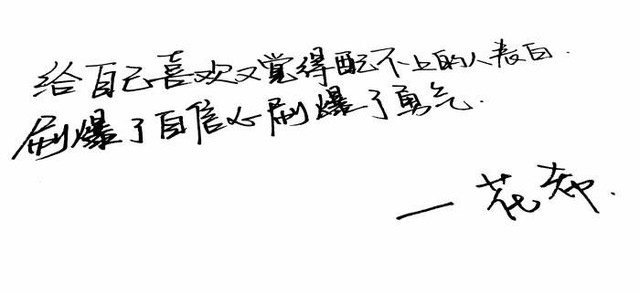 给自己喜欢又觉得配不上的人表白.
刷爆了自信心刷爆了勇气.
一花却.